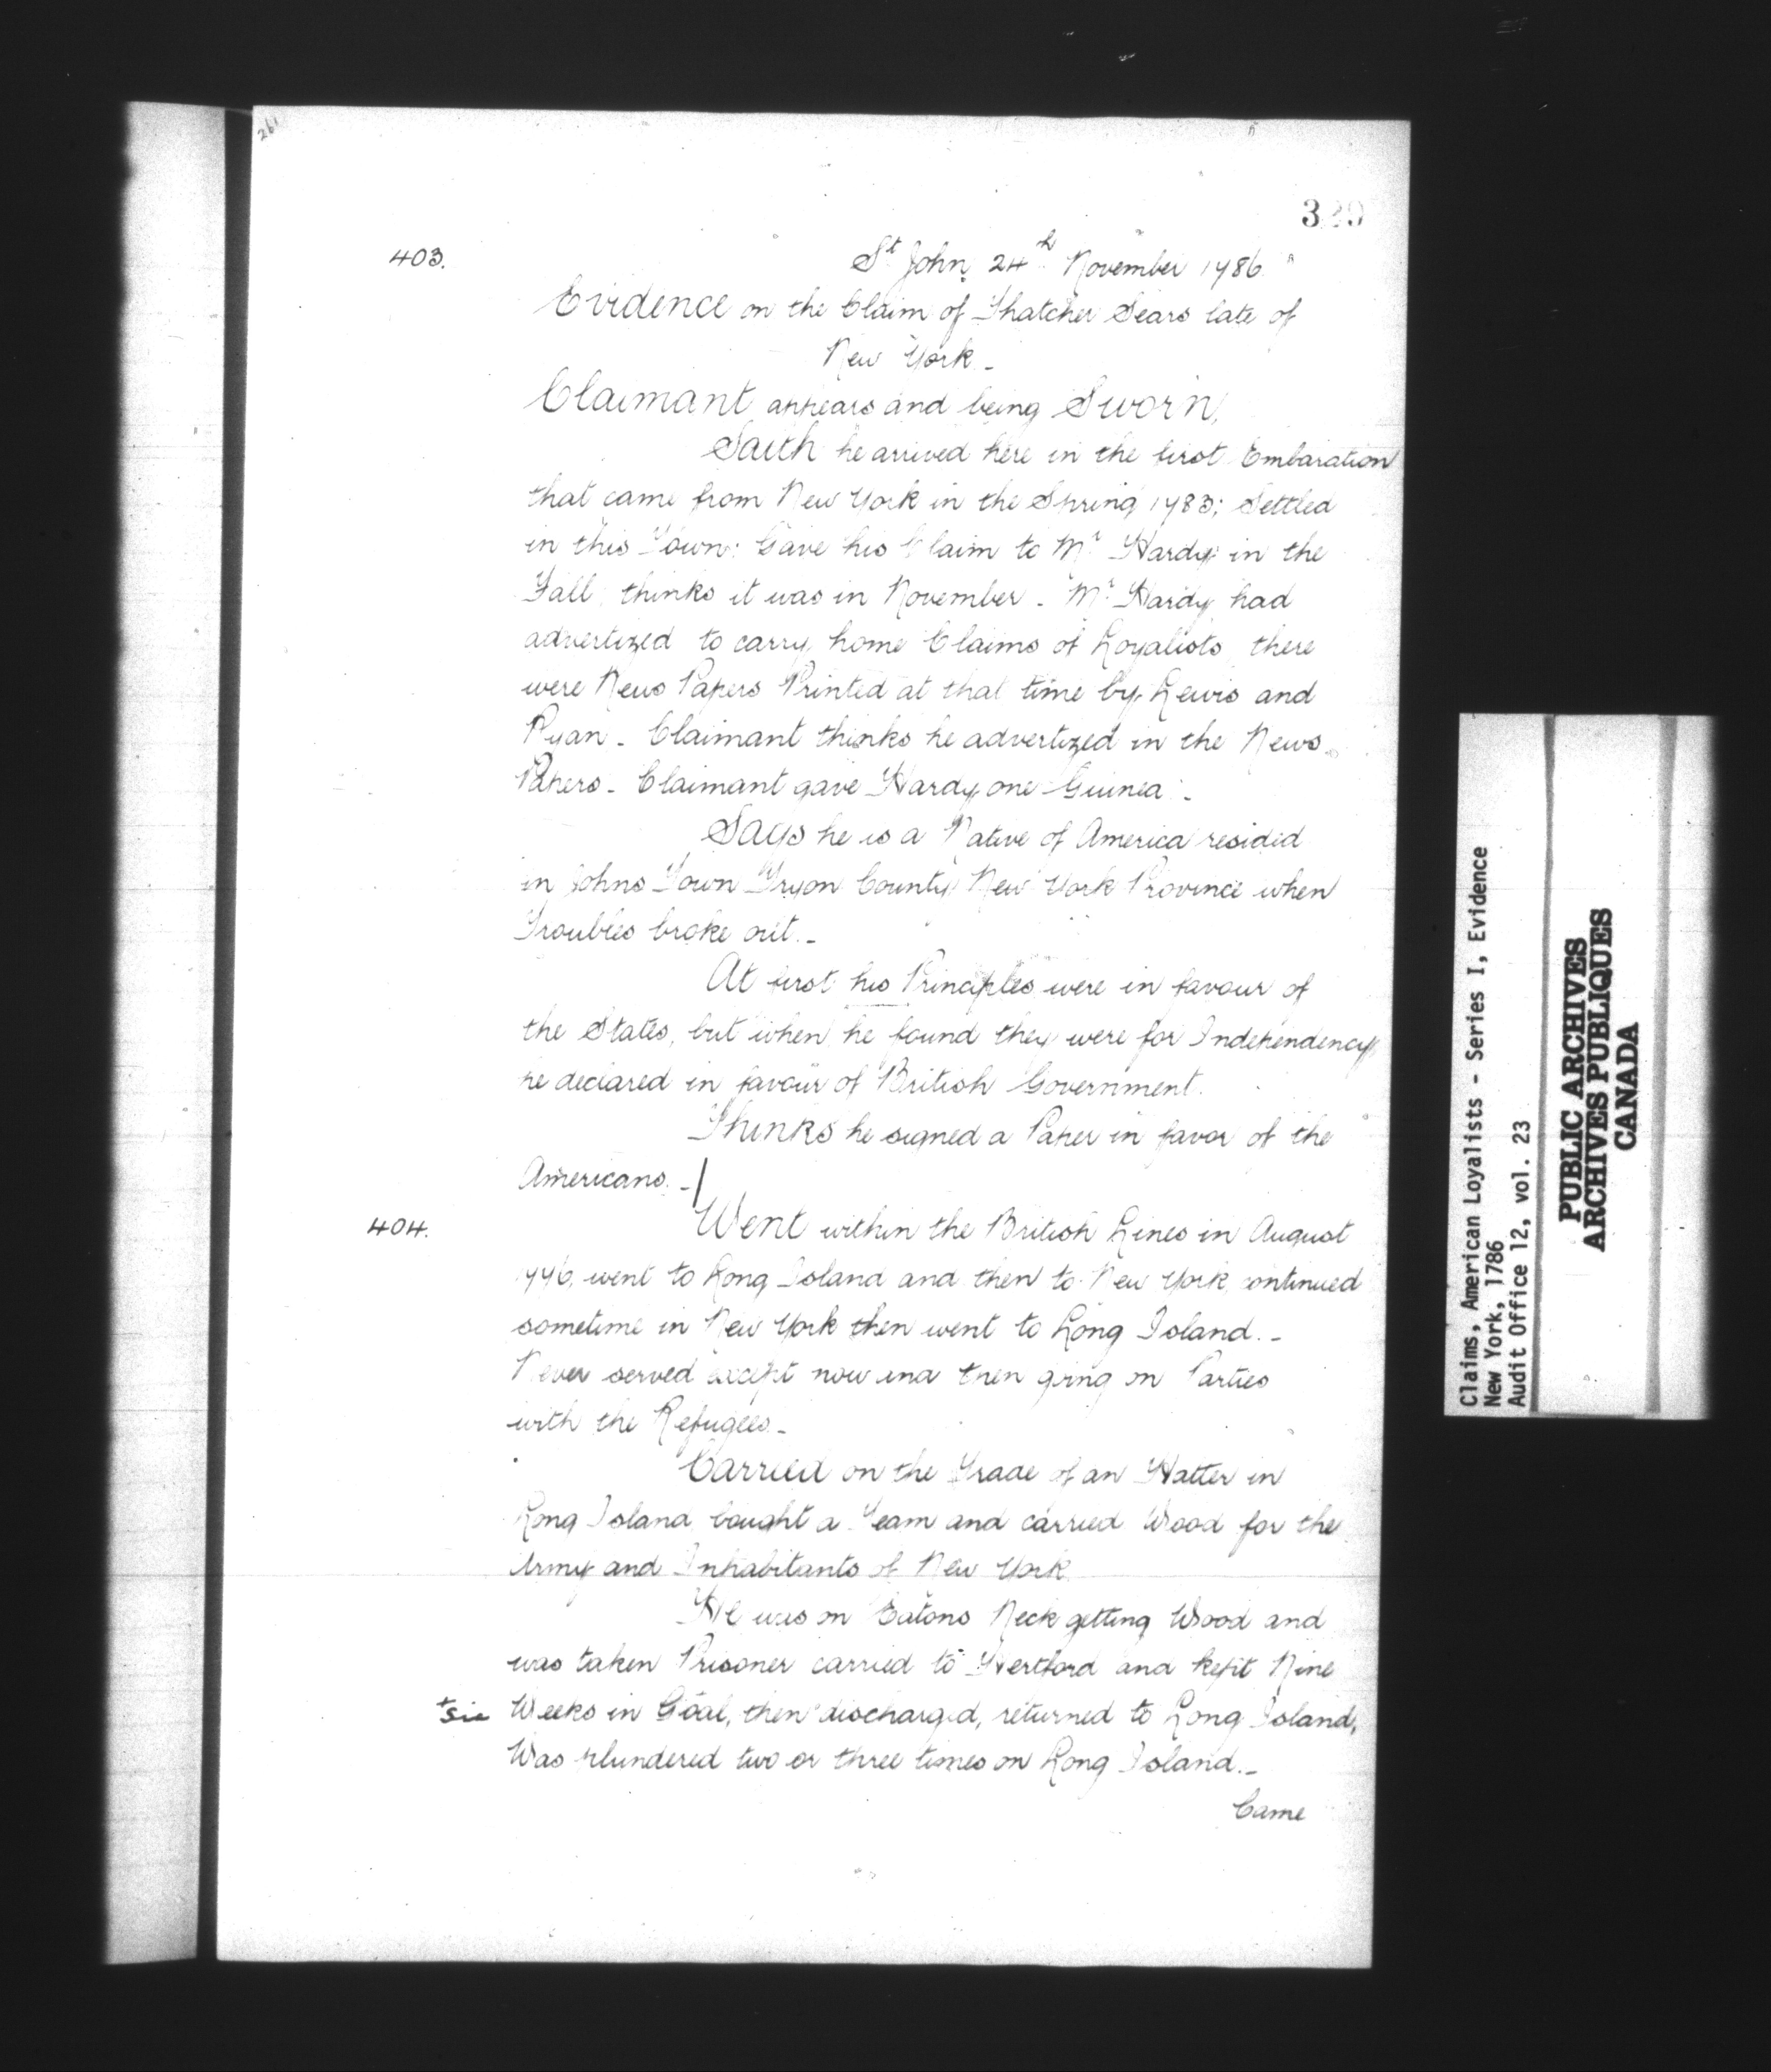 261
403.
St. John 24th November 1786
Evidence on the Claim of Thatcher Sears late of
New York _
Claimant appears and being Sworn,
Saith he arrived here in the first Embaration
that came from New York in the Spring 1783; Settled
in this Town: Gave his Claim to Mr Hardy in the
Fall thinks it was in November _ Mr Hardy had
advertized to carry home Claims of Loyalists there
were News Papers Printed at that time by Lewis and
Ryan _ Claimant thinks he advertized in the News
Papers _ Claimant gave Hardy one Guinea _
Says he is a Native of America resided
in Johns Town Tryon County New York Province when
Troubles broke out. _
At first his Principles were in favour of
the States, but when he found they were for Independency
he declared in favour of British Government.
Thinks he signed a Paper in favor of the
Americans. _
404.
Went within the British Lines in August
1776, went to Long Island and then to New York, continued
sometime in New York then went to Long Island. _
Never served except now and then going on Parties
with the Refugees _
Carried on the Trade of an Hatter in
Long Island bought a Team and carried Wood for the
Army and Inhabitants of New York
He was on Eatons Neck getting Wood and
was taken Prisoner carried to Hertford and kept Nine
+ sic Weeks in Goal, then discharged, returned to Long Island,
Was plundered two or three times on Long Island. _
Came
Claims, American Loyalists - Series I, Evidence
New York, 1786
Audit Office 12, vol. 23
PUBLIC ARCHIVES
ARCHIVES PUBLIQUES
CANADA